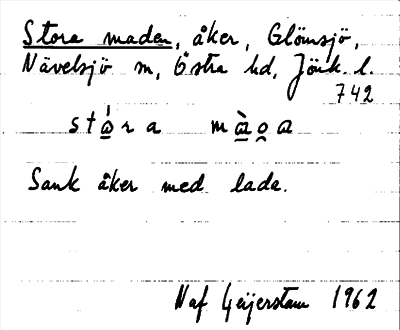 Stora maden, åker, Glömsjö,
Nävelsjö sn, Östra hd, Jönk. l.
742
stɷ́ra mɑ̀oa
Sank åker med lada.
Naf Geijerstam 1962